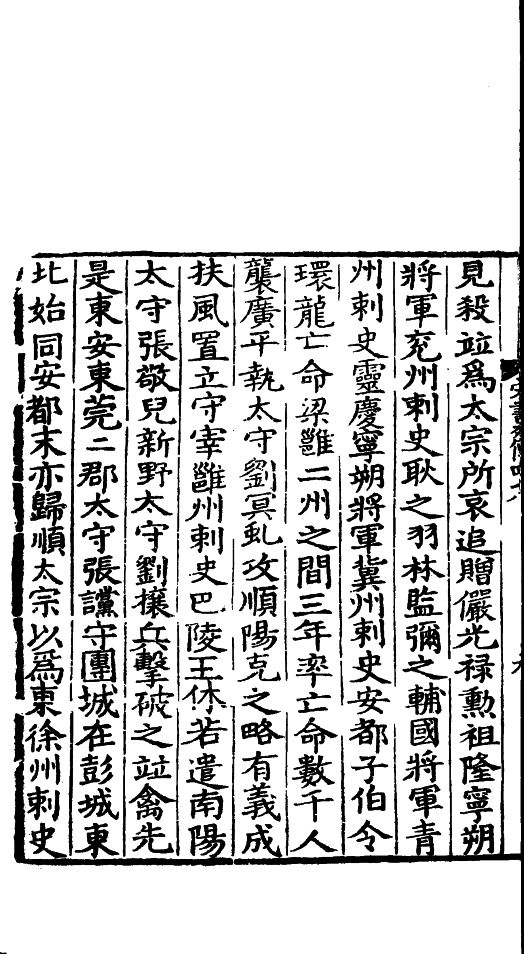 見殺竝爲太宗所哀追贈儼光禄勲祖隆寧朔
將軍兖州刺史耿之羽林監彌之輔國將軍青
州刺史靈慶寧朔將軍冀州刺史安都子伯令
環龍亡命梁雝二州之間三年率亡命數千人
襲廣平執太守劉冥虬攻順陽克之略有義成
扶風置立守宰雝州刺史巴陵王休若遣南陽
太守張敬兒新野太守劉攘兵擊破之竝禽先
是東安東莞二郡太守張讜守團城在彭城東
北始同安都末亦歸順太宗以爲東徐州刺史